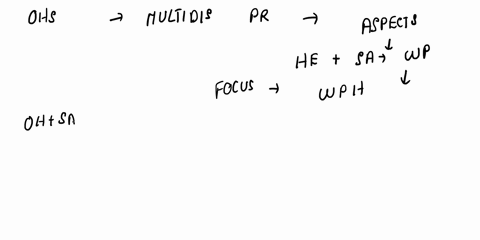 OHS → MULTIDIS PR → ASPECTS
↓
HE + SA → WP
FOCUS → WPH ↓
OH + SA